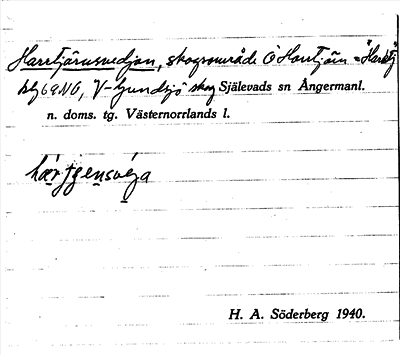 Harrtjärnsvedjan, skogsområde Ö Harrtjärn = "Harrtj"
blg 69 NO, V-Gundsjö skog Själevads sn Ångermanl.
n. doms. tg. Västernorrlands l.
hærtjensveja
H. A. Söderberg 1940.